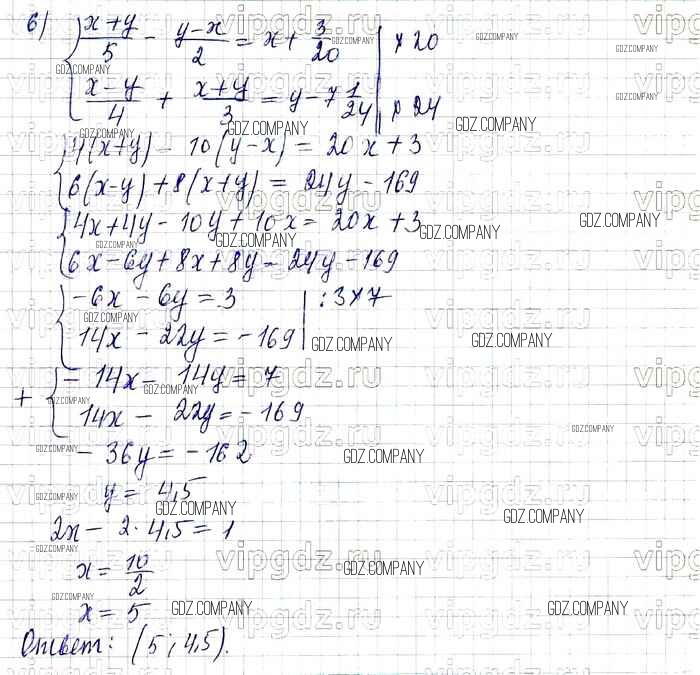 б) { (x+y)/5 - (y-x)/2 = x + 3/20 | × 20
(x-y)/4 + (x+y)/3 = y - 7 1/24 | × 24
{ 4(x+y) - 10(y-x) = 20x + 3
6(x-y) + 8(x+y) = 24y - 169
{ 4x+4y - 10y + 10x = 20x + 3
6x - 6y + 8x + 8y = 24y - 169
{ -6x - 6y = 3 | :3 × 7
14x - 22y = -169
+ { - 14x - 14y = 7
14x - 22y = -169
- 36y = -162
y = 4,5
2x - 2·4,5 = 1
x = 10/2
x = 5
Ответ: (5; 4,5).
vipgdz.ru
GDZ.COMPANY